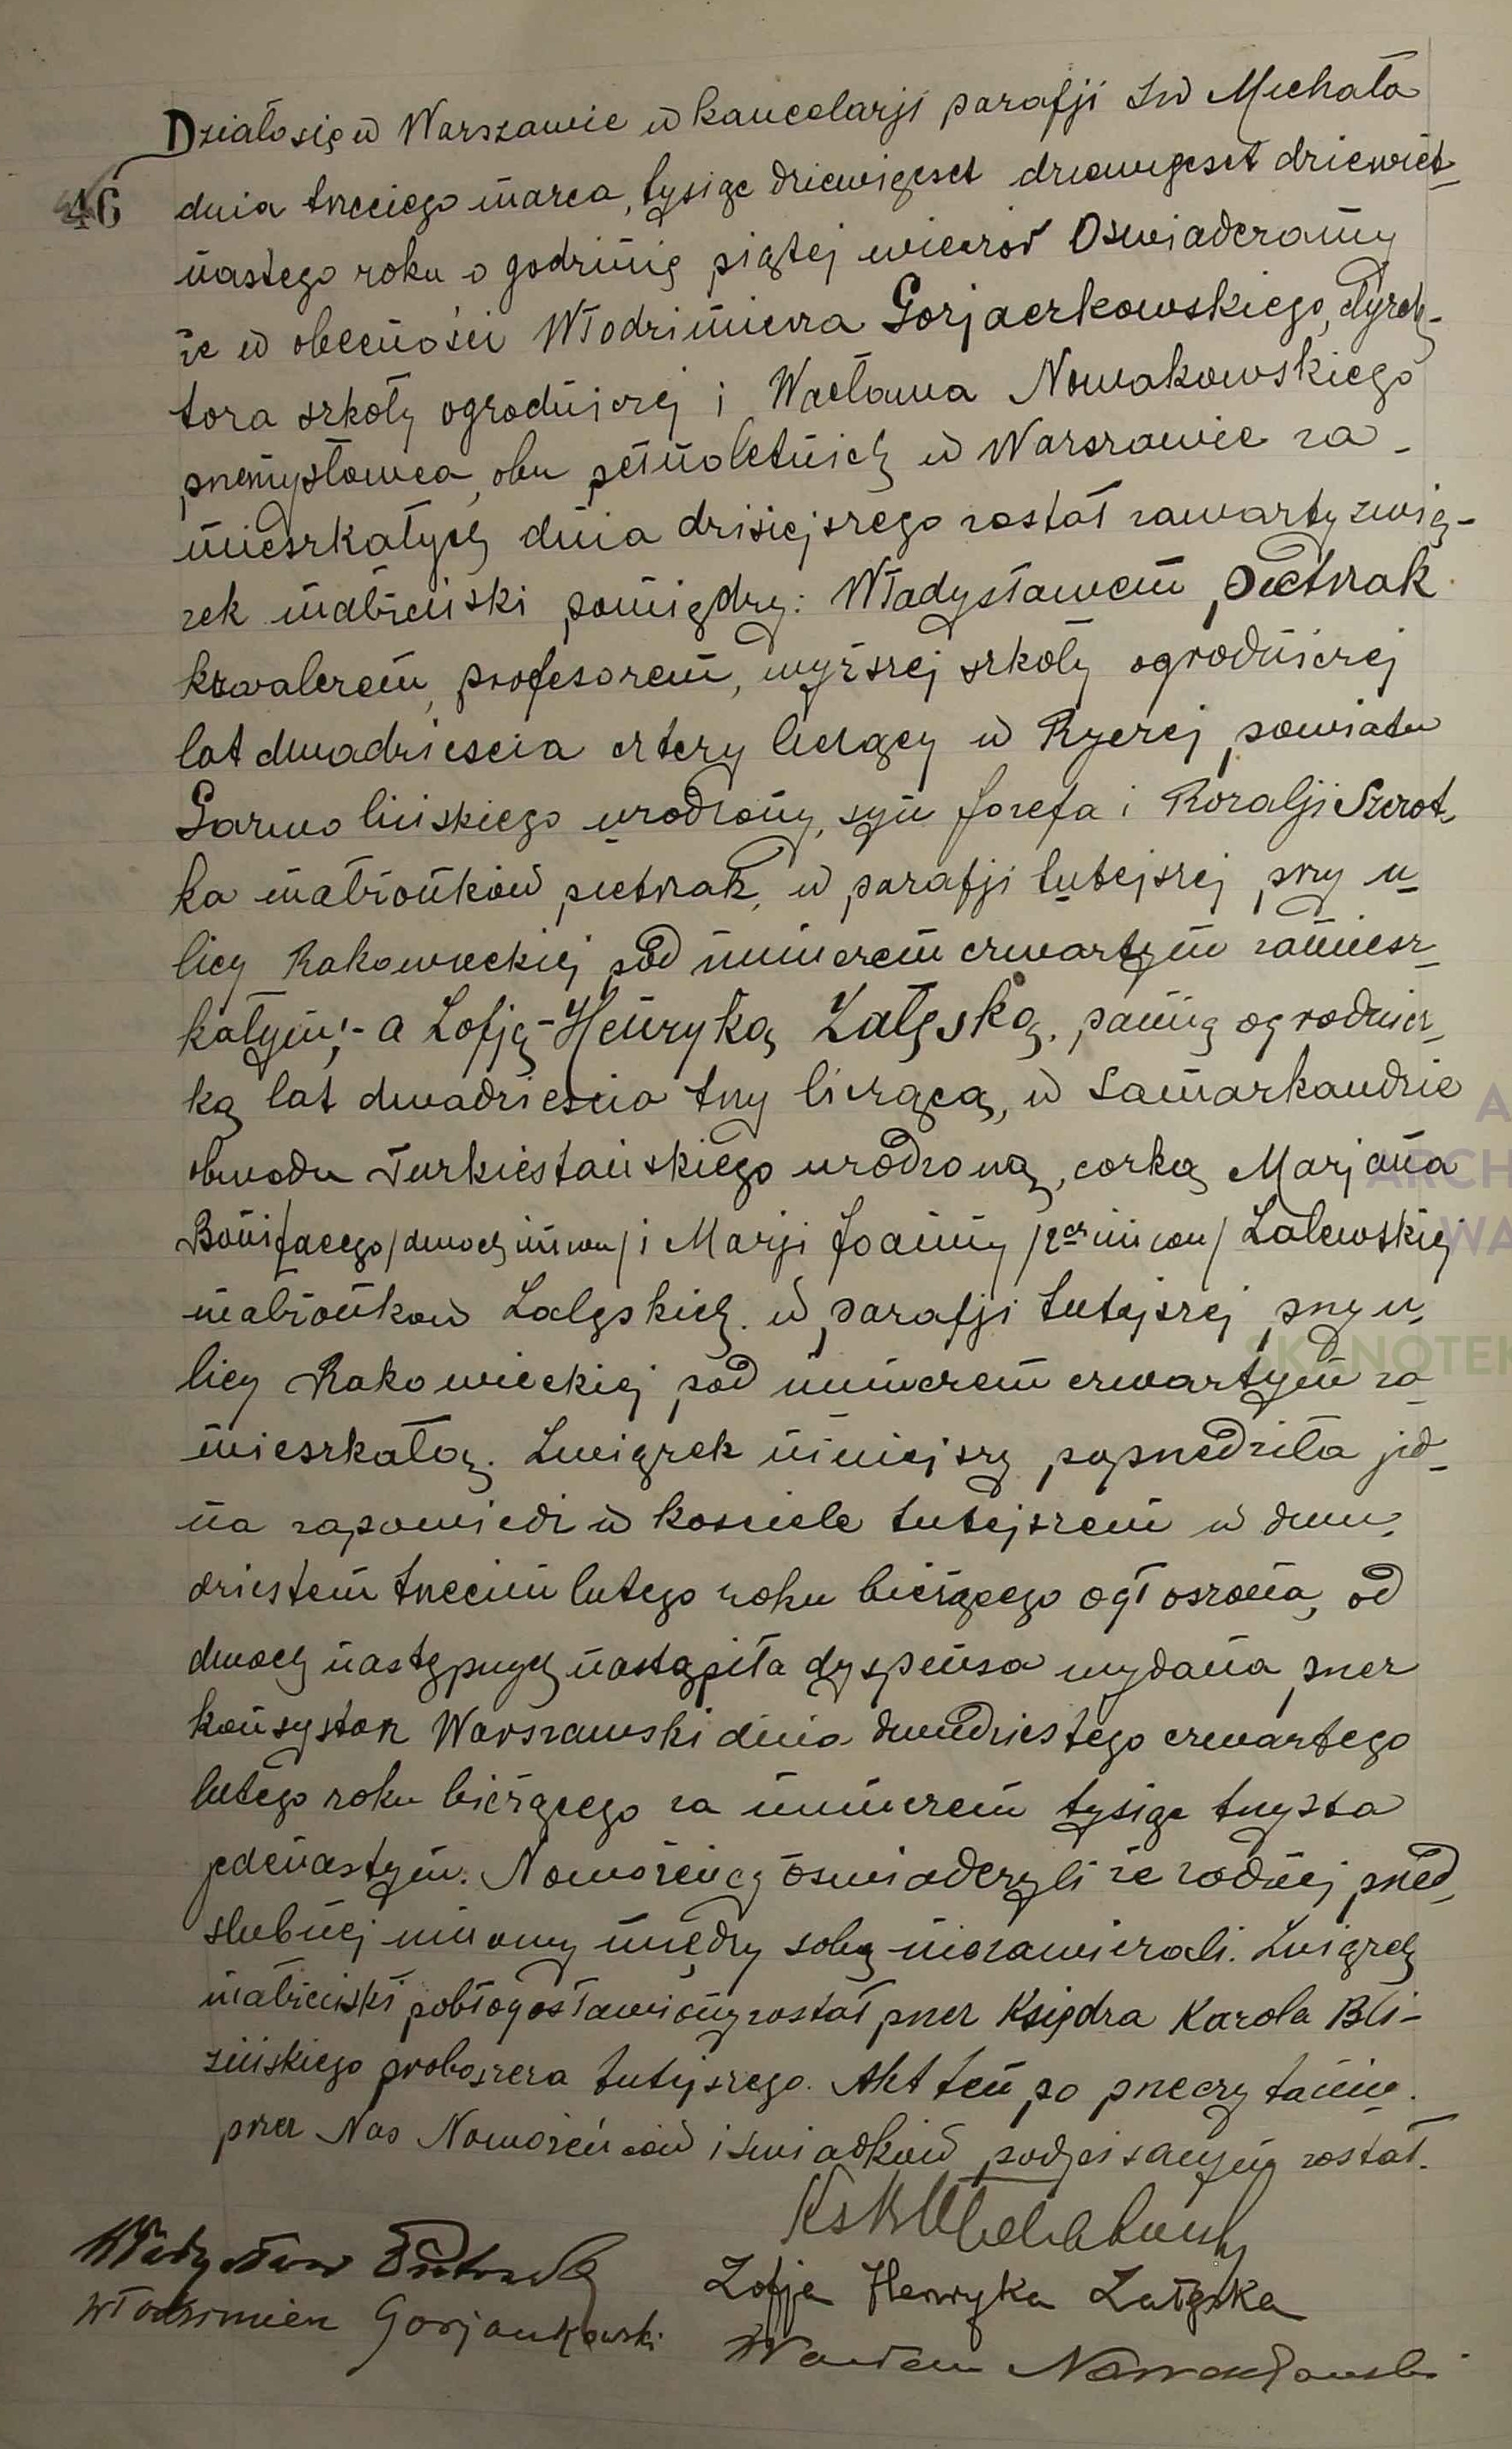 Działo się w Warszawie w kancelarji parafji św Michała
46
dnia trzeciego marca, tysiąc dziewięćset dziewięt-
nastego roku o godzinię piątej wieczór Oświadczamy
że w obecności Włodzimierza Gorjaczkowskiego, dyrek-
tora szkoły ogrodniczej i Wacława Nowakowskiego
przemysłowca, obu pełnoletnich w Warszawie za-
mieszkałych dnia dzisiejszego został zawarty zwią-
zek małżeński pomiędzy: Władysławem Pietrzak
kawalerem, profesorem, wyższej szkoły ogrodniczej
lat dwadzieścia cztery liczący w Ryczej powiatu
Garwolińskiego urodzony, syn Józefa i Rozalji Szrot-
ka małżonków Pietrzak, w parafji tutejszej przy u-
licy Rakowieckiej pod numerem czwartym zamiesz-
kałym; - a Zofją-Henryką Załęską, panną ogrodnicz-
ką lat dwadzieścia trzy liczącą, w Samarkandzie
obwodu Turkiestańskiego urodzoną, corką Marjana
Bonifacego /dwoch imion/ i Marji Joanny /2ch imion/ Zalewskiej
małżonkow Załęskich. w parafji tutejszej przy u-
licy Rakowieckiej pod numerem czwartym za-
mieszkałą. Związek niniejszy poprzedziła jed-
na zapowiedź w kosciele tutejszem w dwu-
dziestem trzecim lutego roku bieżącego ogłoszona, od
dwoch następnych nastąpiła dyspensa wydana przez
konsystorz Warszawski dnia dwudziestego czwartego
lutego roku bieżącego za numerem tysiąc trzysta
jedenastym. Nowożeńcy oświadczyli że żadnej przed-
slubnej umowy między sobą niezawierali. Związek
małżeński pobłogosławiony został przez Księdza Karola Bli-
zińskiego proboszcza tutejszego. Akt ten po przeczytaniu
przez Nas Nowożeńców i świadków podpisanym został.
Władysław Pietrzak
Zofja Henryka Załęska
Włodzimierz Gorjaczkowski
Wacław Nowakowski